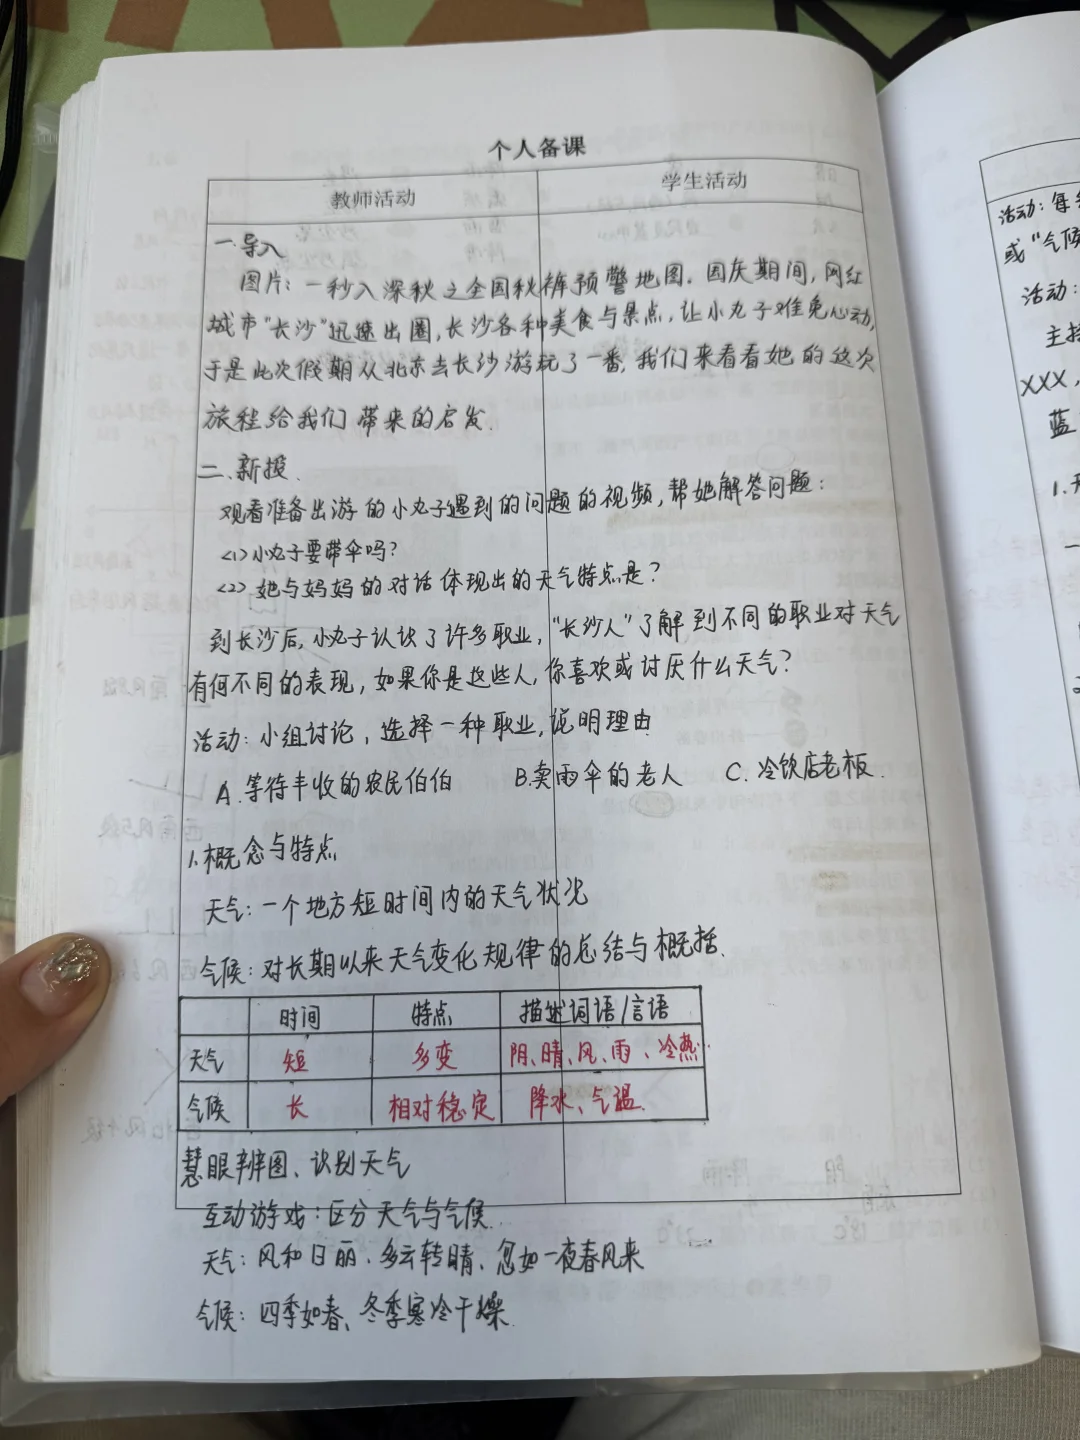 个人备课
教师活动 学生活动
一.导入
图片：一秒入深秋之全国秋裤预警地图。国庆期间，网红
城市“长沙”迅速出圈，长沙各种美食与景点，让小丸子难免心动，
于是此次假期从北京去长沙游玩了一番，我们来看看她的这次
旅程给我们带来的启发.
二.新授.
观看准备出游的小丸子遇到的问题的视频，帮她解答问题：
<1>小丸子要带伞吗？
<2>她与妈妈的对话体现出的天气特点是？
到长沙后，小丸子认识了许多职业，“长沙人”了解到不同的职业对天气
有何不同的表现，如果你是这些人，你喜欢或讨厌什么天气？
活动：小组讨论，选择一种职业，说明理由
A.等待丰收的农民伯伯 B.卖雨伞的老人 C.冷饮店老板.
1.概念与特点
天气：一个地方短时间内的天气状况
气候：对长期以来天气变化规律的总结与概括.
时间 特点 描述词语/言语
天气 短 多变 阴、晴、风、雨、冷热…
气候 长 相对稳定 降水、气温.
慧眼辨图、识别天气
互动游戏：区分天气与气候.
天气：风和日丽、多云转晴、忽如一夜春风来
气候：四季如春、冬季寒冷干燥.
活动：每
或“气候
活动：
主持
XXX，
蓝
1.